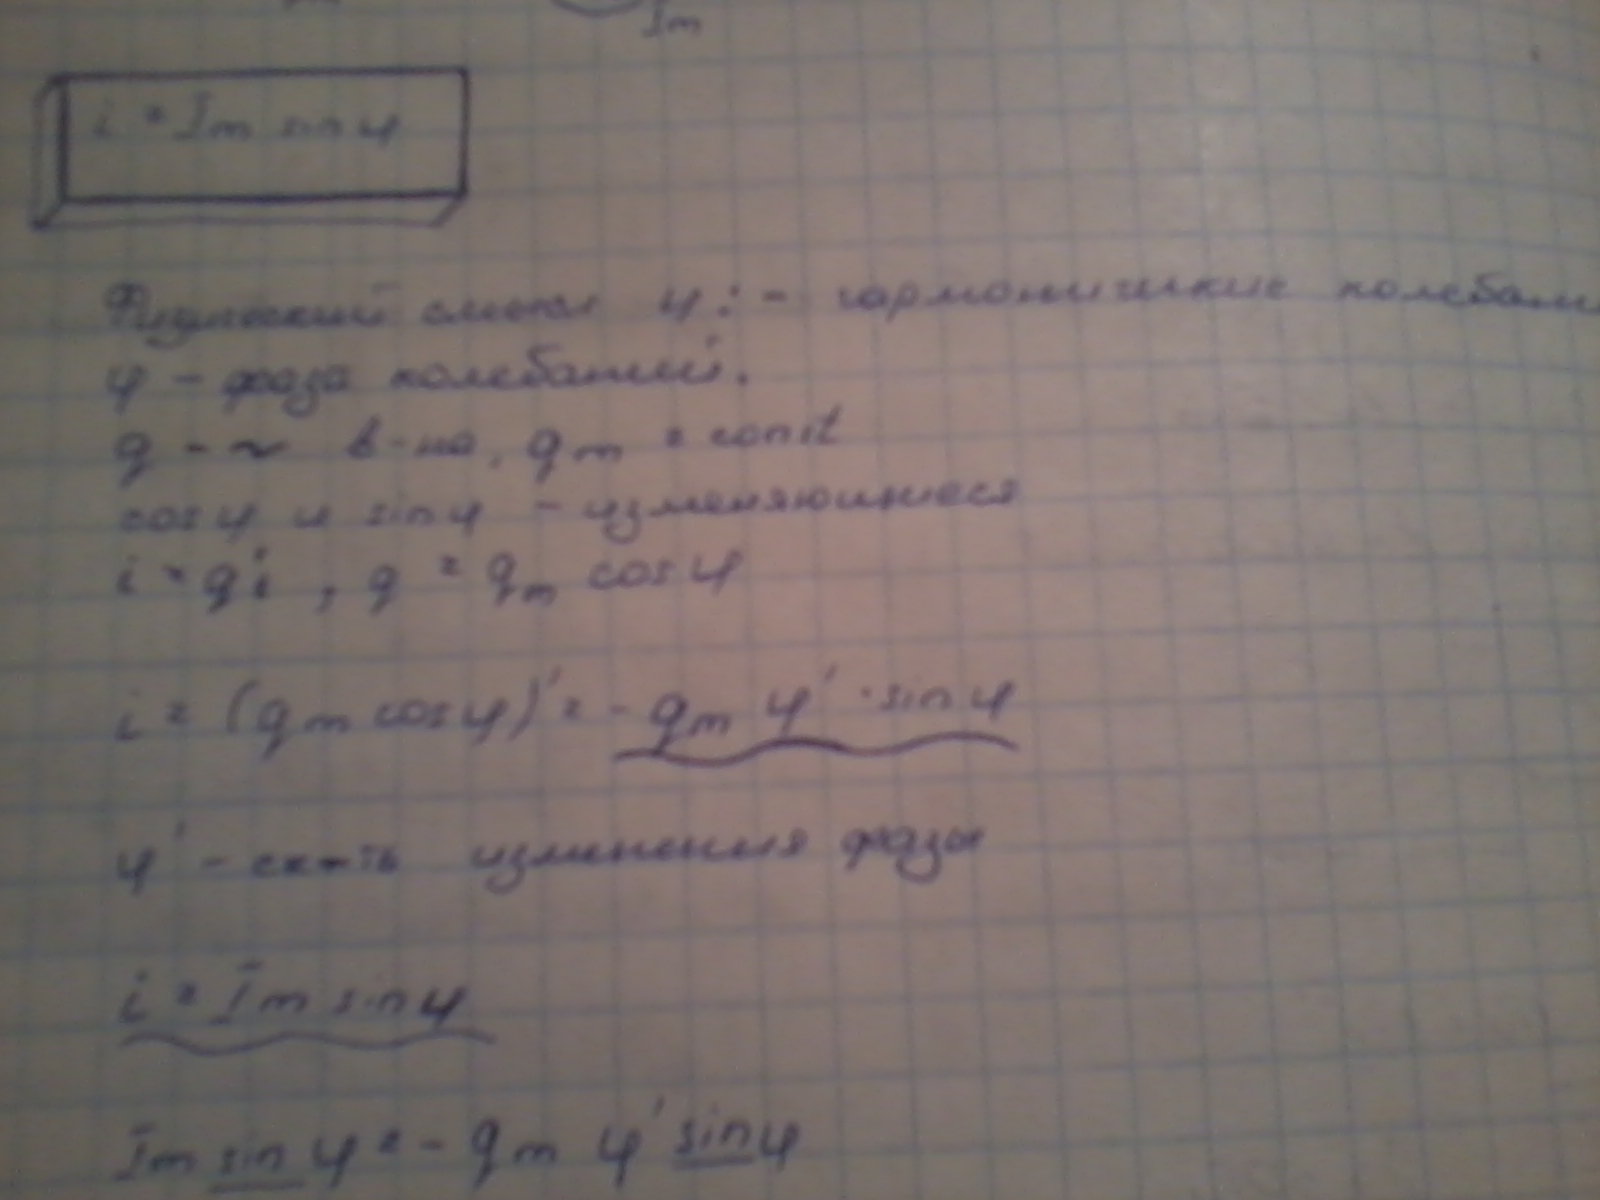 Im
i = Im sin φ
Физический смысл φ: - гармонические колебани
φ - фаза колебаний.
q - ~ в-на, qm = const
cos φ и sin φ - изменяющиеся
i = q i , q = qm cos φ
i = (qm cos φ)' = - qm φ' · sin φ
φ' - ск-ть изменения фазы
i = Im sin φ
Im sin φ = - qm φ' sin φ